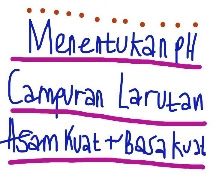 Menentukan pH
Campuran Larutan
Asam Kuat + Basa kuat